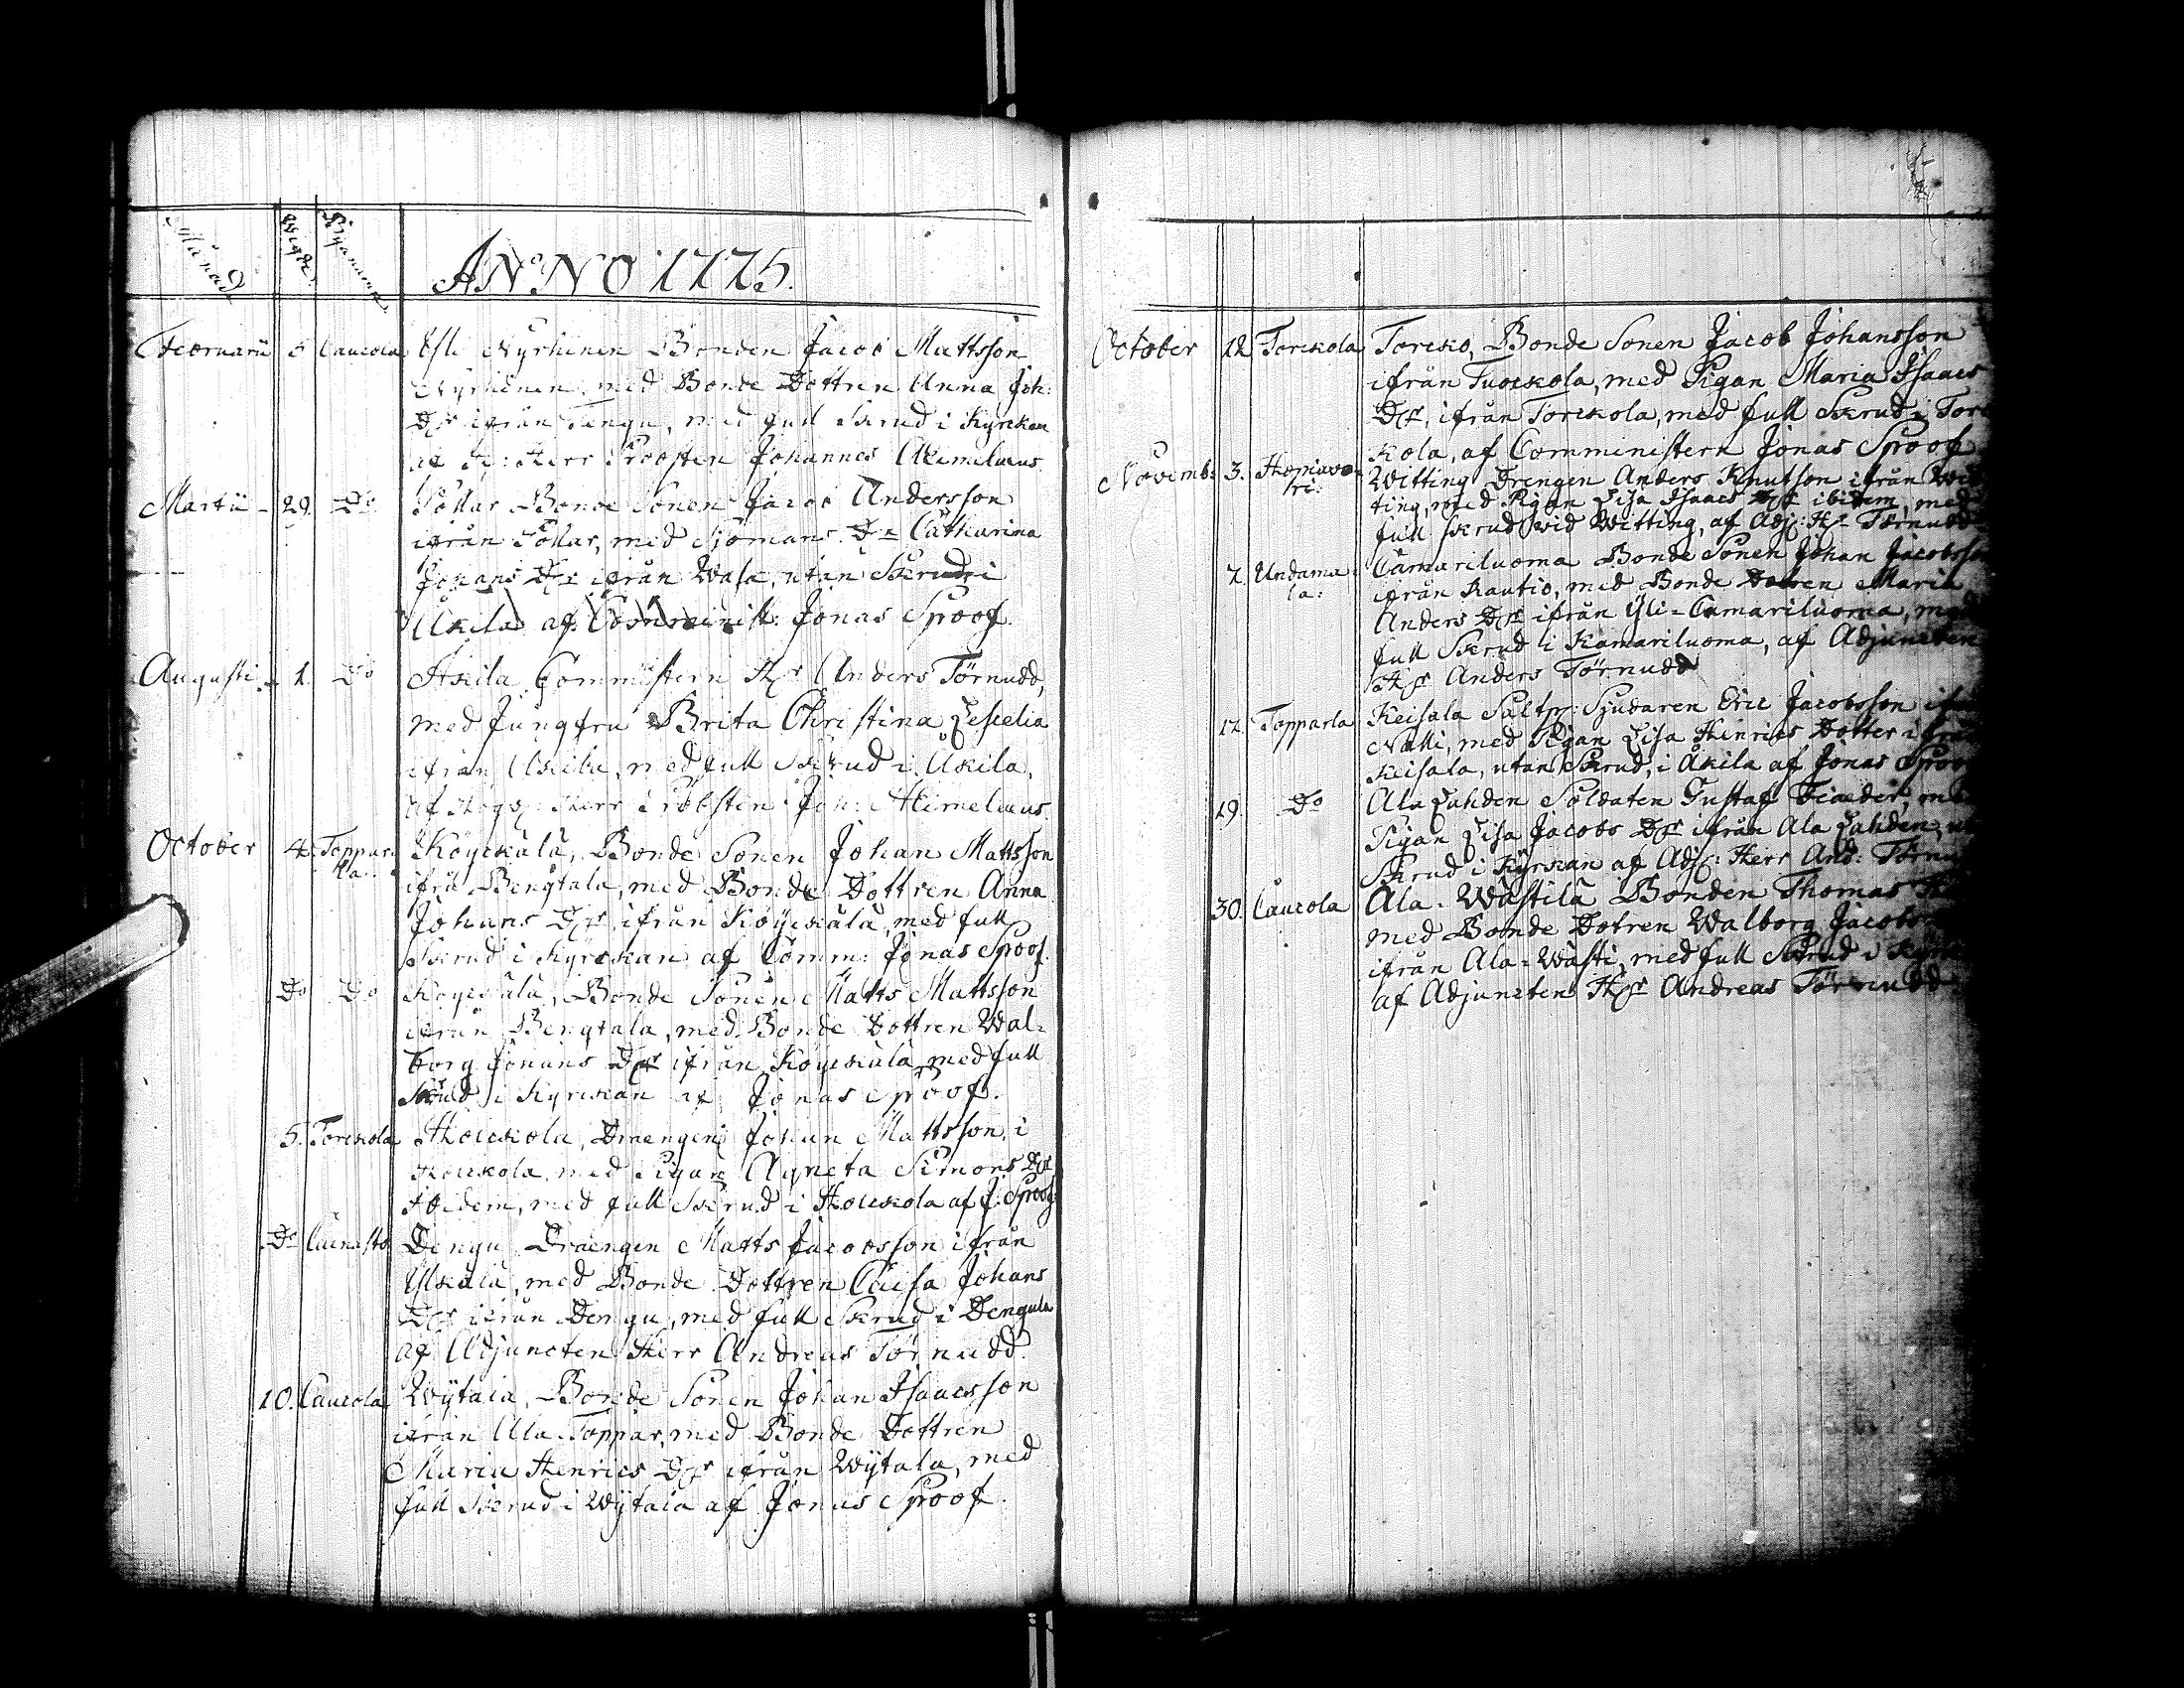 Månad Wigde Byanamn
ANNO 1775.
Februarii 5 Caucola Ofli Nyrhinen Bonden Jacob Mattsson
Nyrhinen, med Bonde Dottren Anna Joh:
Dotr ifrån Dengu, med full Skrud i Kyrckan
af Herr Probsten Johannes Aeimelaeus
Martii - 29. Do Pollar Bonde Sonen Jacob Andersson
ifrån Pollar, med Sjömans Dr Catharina
Johans Dotr ifrån Wala, utan Skrud i
Äkilä af Comminist: Jonas Sproof.
Augusti - 1. Do Äkila Comministern Hr Anders Törnudd,
med Jungfru Brita Christina
ifrån Äkila, med full Skrud i Äkila,
af Herr Probsten Joh: Aeimelaeus
October 4. Toppar=
la. Köyckälä, Bonde Sonen Johan Mattsson
ifrå Bengtala, med Bonde Dottren Anna
Johans Dotr ifrån Köyckälä, med full
Skrud i Kyrckan af Comm: Jonas Sproof.
Do Do Köyckälä, Bonde Sonen Matts Mattsson
ifrån Bengtala, med Bonde Dottren Wal=
borg Johans Dotr ifrån Köyckälä, med full
Skrud i Kyrckan af Jonas Sproof.
5. Torckola Hoickola, Draengen Johan Mattsson, i
Hoickola, med Pigan Agneta Simons Dotr
ibidem, med full Skrud i Hoickola af J. Sproof
Do Cainasto Dengu Draengen Matts Jacobsson ifrån
med Bonde Dottren Caisa Johans
Dotr ifrån Dengu, med full Skrud i Dengula
af Adjuncten Herr Andreas Törnudd.
10. Caucola Wÿtala, Bonde Sonen Johan Isaacsson
ifrån Ala-Toppar, med Bonde Dottren
Maria Henrics Dotr ifrån Wÿtala, med
full Skrud i Wÿtala af Jonas Sproof.
October 12 Torckola Torcko, Bonde Sonen Jacob Johansson
ifrån Tuockola, med Pigan Maria Isaacs
Dotr, ifrån Torckola, med full Skrud i Torc
kola, af Comministern Jonas Sproof
Novemb: 3. Harjawa=
ri: Witting Drengen Anders Knutson ifrån Wit
ting, med Pigan Lisa Isaacs Dotr ibidem, med
full Skrud vid Witting, af Adj: Hr Törnudd
7. Undama
la: Camariluoma Bonde Sonen Johan Jacobsson
ifrån Rautio, med Bonde Dottren Maria
Anders Dotr ifrån Yli-Camariluoma, med
full Skrud i Kamariluoma, af Adjuncten
Hr Anders Törnudd
12. Topparla Keisala Saltp: Sjudaren Eric Jacobsson
Nalli, med Pigan Lisa Hinrics Dotter ifrån
Keisala, utan Skrud, i Äkila af Jonas Sproof
19. Do Ala Lahden Soldaten Gustaf
Pigan Lisa Jacobs Dotr ifrån Ala Lahden,
Skrud i Kyrckan af Adj: Herr And: Törnu
30. Caucola Ala-Wästilä Bonden Thomas
med Bonde Dotren Walborg Jacobs
ifrån Ala-Wästi, med full Skrud i Kyrc
af Adjuncten Hr Andreas Törnudd